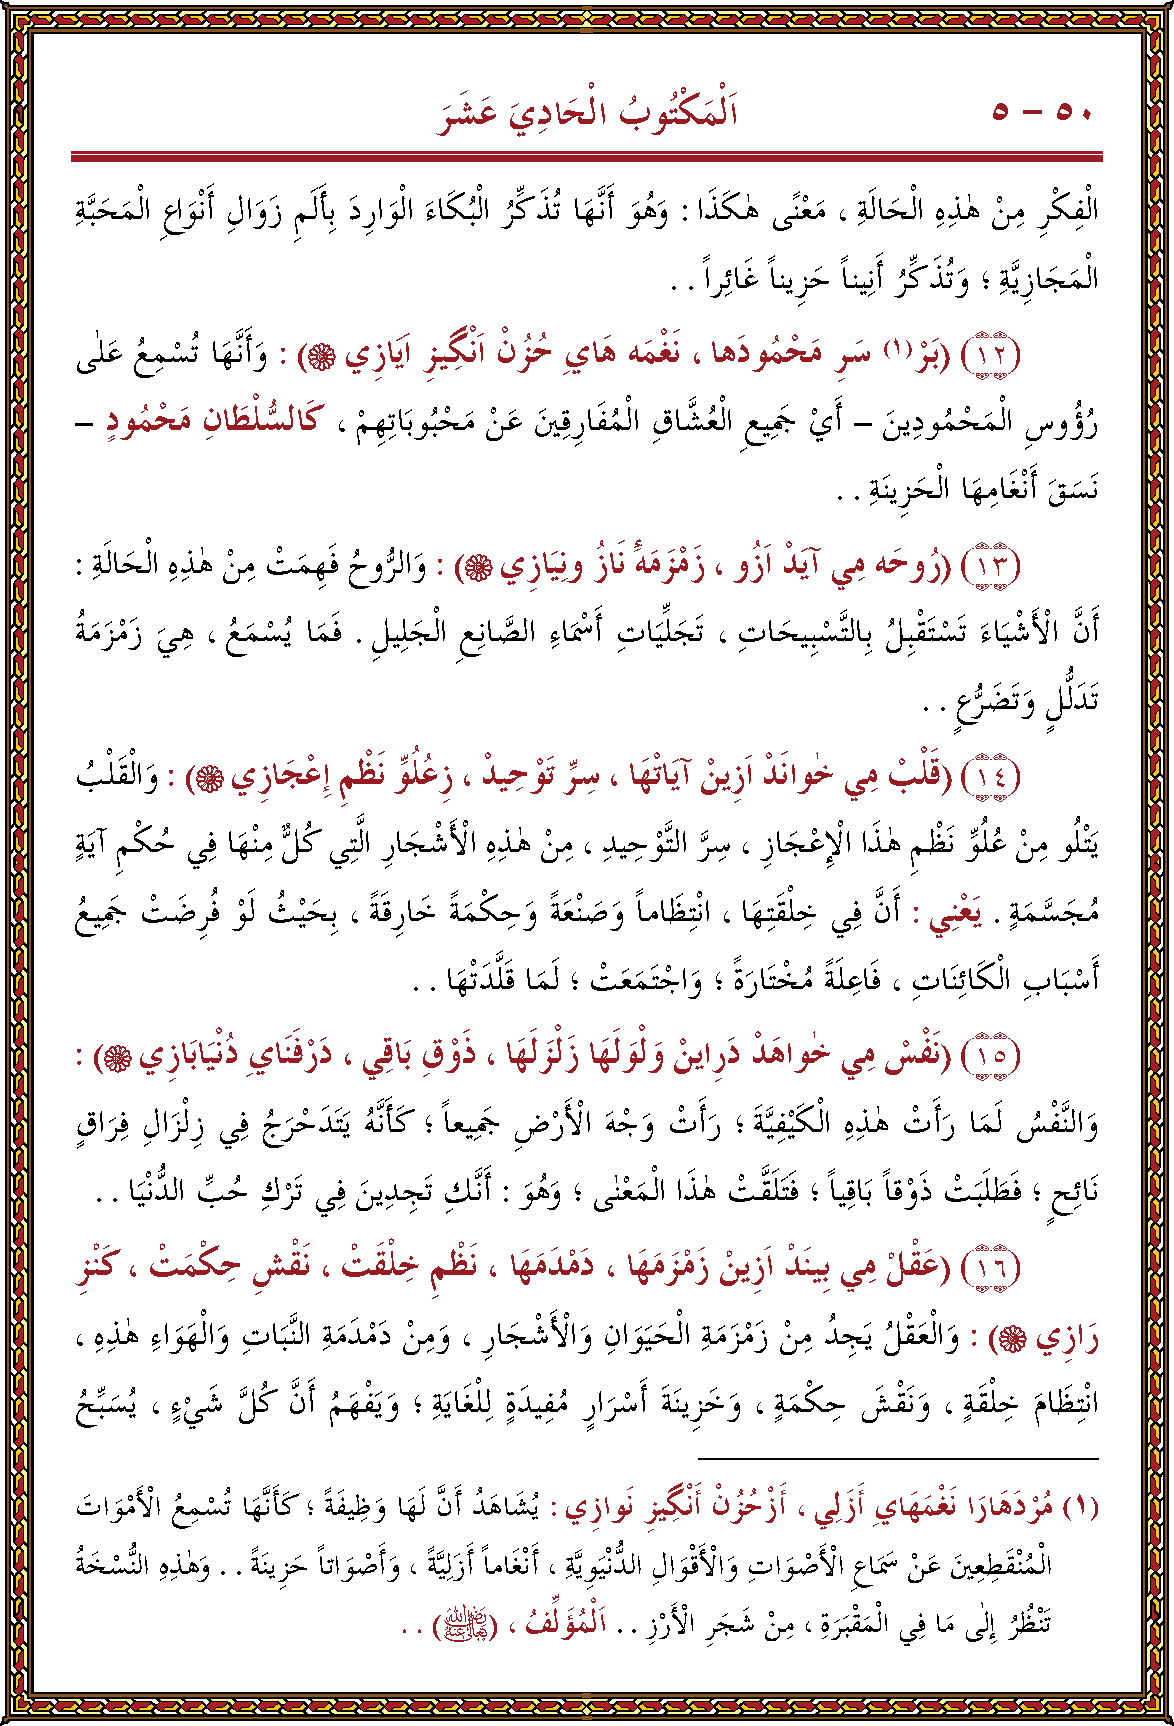 ٥٠ – ٥ اَلْمَكْتُوبُ الْحَادِيَ عَشَرَ
الْفِكْرِ مِنْ هٰذِهِ الْحَالَةِ ، مَعْنًى هٰكَذَا : وَهُوَ أَنَّهَا تُذَكِّرُ الْبُكَاءَ الْوَارِدَ بِأَلَمِ زَوَالِ أَنْوَاعِ الْمَحَبَّةِ
الْمَجَازِيَّةِ ؛ وَتُذَكِّرُ أَنِيناً حَزِيناً غَائِراً . .
(١٢) (بَرْ(١) سَرِ مَحْمُودَها ، نَغْمَه هَايِ حُزُنْ اَنْگِيزِ اَيَازِي ❁) : وَأَنَّهَا تُسْمِعُ عَلٰى
رُؤُوسِ الْمَحْمُودِينَ – أَيْ جَمِيعِ الْعُشَّاقِ الْمُفَارِقِينَ عَنْ مَحْبُوبَاتِهِمْ ، كَالسُّلْطَانِ مَحْمُودٍ –
نَسَقَ أَنْغَامِهَا الْحَزِينَةِ . .
(١٣) (رُوحَه مِي آيَدْ اَزُو ، زَمْزَمَهٔ نَازُ ونِيَازِي ❁) : وَالرُّوحُ فَهِمَتْ مِنْ هٰذِهِ الْحَالَةِ :
أَنَّ الْأَشْيَاءَ تَسْتَقْبِلُ بِالتَّسْبِيحَاتِ ، تَجَلِّيَاتِ أَسْمَاءِ الصَّانِعِ الْجَلِيلِ . فَمَا يُسْمَعُ ، هِيَ زَمْزَمَةُ
تَدَلُّلٍ وَتَضَرُّعٍ . .
(١٤) (قَلْبْ مِي خٰوانَدْ اَزِينْ آيَاتْهَا ، سِرِّ تَوْحِيدْ ، زِعُلُوِّ نَظْمِ إِعْجَازِي ❁) : وَالْقَلْبُ
يَتْلُو مِنْ عُلُوِّ نَظْمِ هٰذَا الْإِعْجَازِ ، سِرَّ التَّوْحِيدِ ، مِنْ هٰذِهِ الْأَشْجَارِ الَّتِي كُلٌّ مِنْهَا فِي حُكْمِ آيَةٍ
مُجَسَّمَةٍ . يَعْنِي : أَنَّ فِي خِلْقَتِهَا ، انْتِظَاماً وَصَنْعَةً وَحِكْمَةً خَارِقَةً ، بِحَيْثُ لَوْ فُرِضَتْ جَمِيعُ
أَسْبَابِ الْكَائِنَاتِ ، فَاعِلَةً مُخْتَارَةً ؛ وَاجْتَمَعَتْ ؛ لَمَا قَلَّدَتْهَا . .
(١٥) (نَفْسْ مِي خٰواهَدْ دَرِاينْ وَلْوَلَهَا زَلْزَلَهَا ، ذَوْقِ بَاقِي ، دَرْفَنَايِ دُنْيَابَازِي ❁) :
وَالنَّفْسُ لَمَا رَأَتْ هٰذِهِ الْكَيْفِيَّةَ ؛ رَأَتْ وَجْهَ الْأَرْضِ جَمِيعاً ؛ كَأَنَّهُ يَتَدَحْرَجُ فِي زِلْزَالِ فِرَاقٍ
نَائِحٍ ؛ فَطَلَبَتْ ذَوْقاً بَاقِياً ؛ فَتَلَقَّتْ هٰذَا الْمَعْنٰى ؛ وَهُوَ : أَنَّكِ تَجِدِينَ فِي تَرْكِ حُبِّ الدُّنْيَا . .
(١٦) (عَقْلْ مِي بِينَدْ اَزِينْ زَمْزَمَهَا ، دَمْدَمَهَا ، نَظْمِ خِلْقَتْ ، نَقْشِ حِكْمَتْ ، كَنْزِ
رَازِي ❁) : وَالْعَقْلُ يَجِدُ مِنْ زَمْزَمَةِ الْحَيَوَانِ وَالْأَشْجَارِ ، وَمِنْ دَمْدَمَةِ النَّبَاتِ وَالْهَوَاءِ هٰذِهِ ،
انْتِظَامَ خِلْقَةٍ ، وَنَقْشَ حِكْمَةٍ ، وَخَزِينَةَ أَسْرَارٍ مُفِيدَةٍ لِلْغَايَةِ ؛ وَيَفْهَمُ أَنَّ كُلَّ شَيْءٍ ، يُسَبِّحُ
(١) مُرْدَهَارَا نَغْمَهَايِ أَزَلِي ، أَزْحُزُنْ أَنْگِيزِ نَوازِي : يُشَاهَدُ أَنَّ لَهَا وَظِيفَةً ؛ كَأَنَّهَا تُسْمِعُ الْأَمْوَاتَ
الْمُنْقَطِعِينَ عَنْ سَمَاعِ الْأَصْوَاتِ وَالْأَقْوَالِ الدُّنْيَوِيَّةِ ، أَنْغَاماً أَزَلِيَّةً ، وَأَصْوَاتاً حَزِينَةً . . وَهٰذِهِ النُّسْخَةُ
تَنْظُرُ إِلٰى مَا فِي الْمَقْبَرَةِ ، مِنْ شَجَرِ الْأَرْزِ . . اَلْمُؤَلِّفُ ، (رضي الله عنه) . .